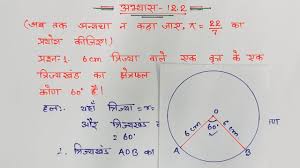 अभ्यास-12.2
(जब तक अन्यथा न कहा जाए, π = 22/7 का
प्रयोग कीजिए।)
प्रश्न 1. 6 cm त्रिज्या वाले एक वृत्त के एक
त्रिज्यखंड का क्षेत्रफल
कोण 60° है।
हल: यहाँ त्रिज्या = r=
और त्रिज्यखंड
∴ त्रिज्यखंड ADB का
O
60°
6 cm
6 cm
A
B